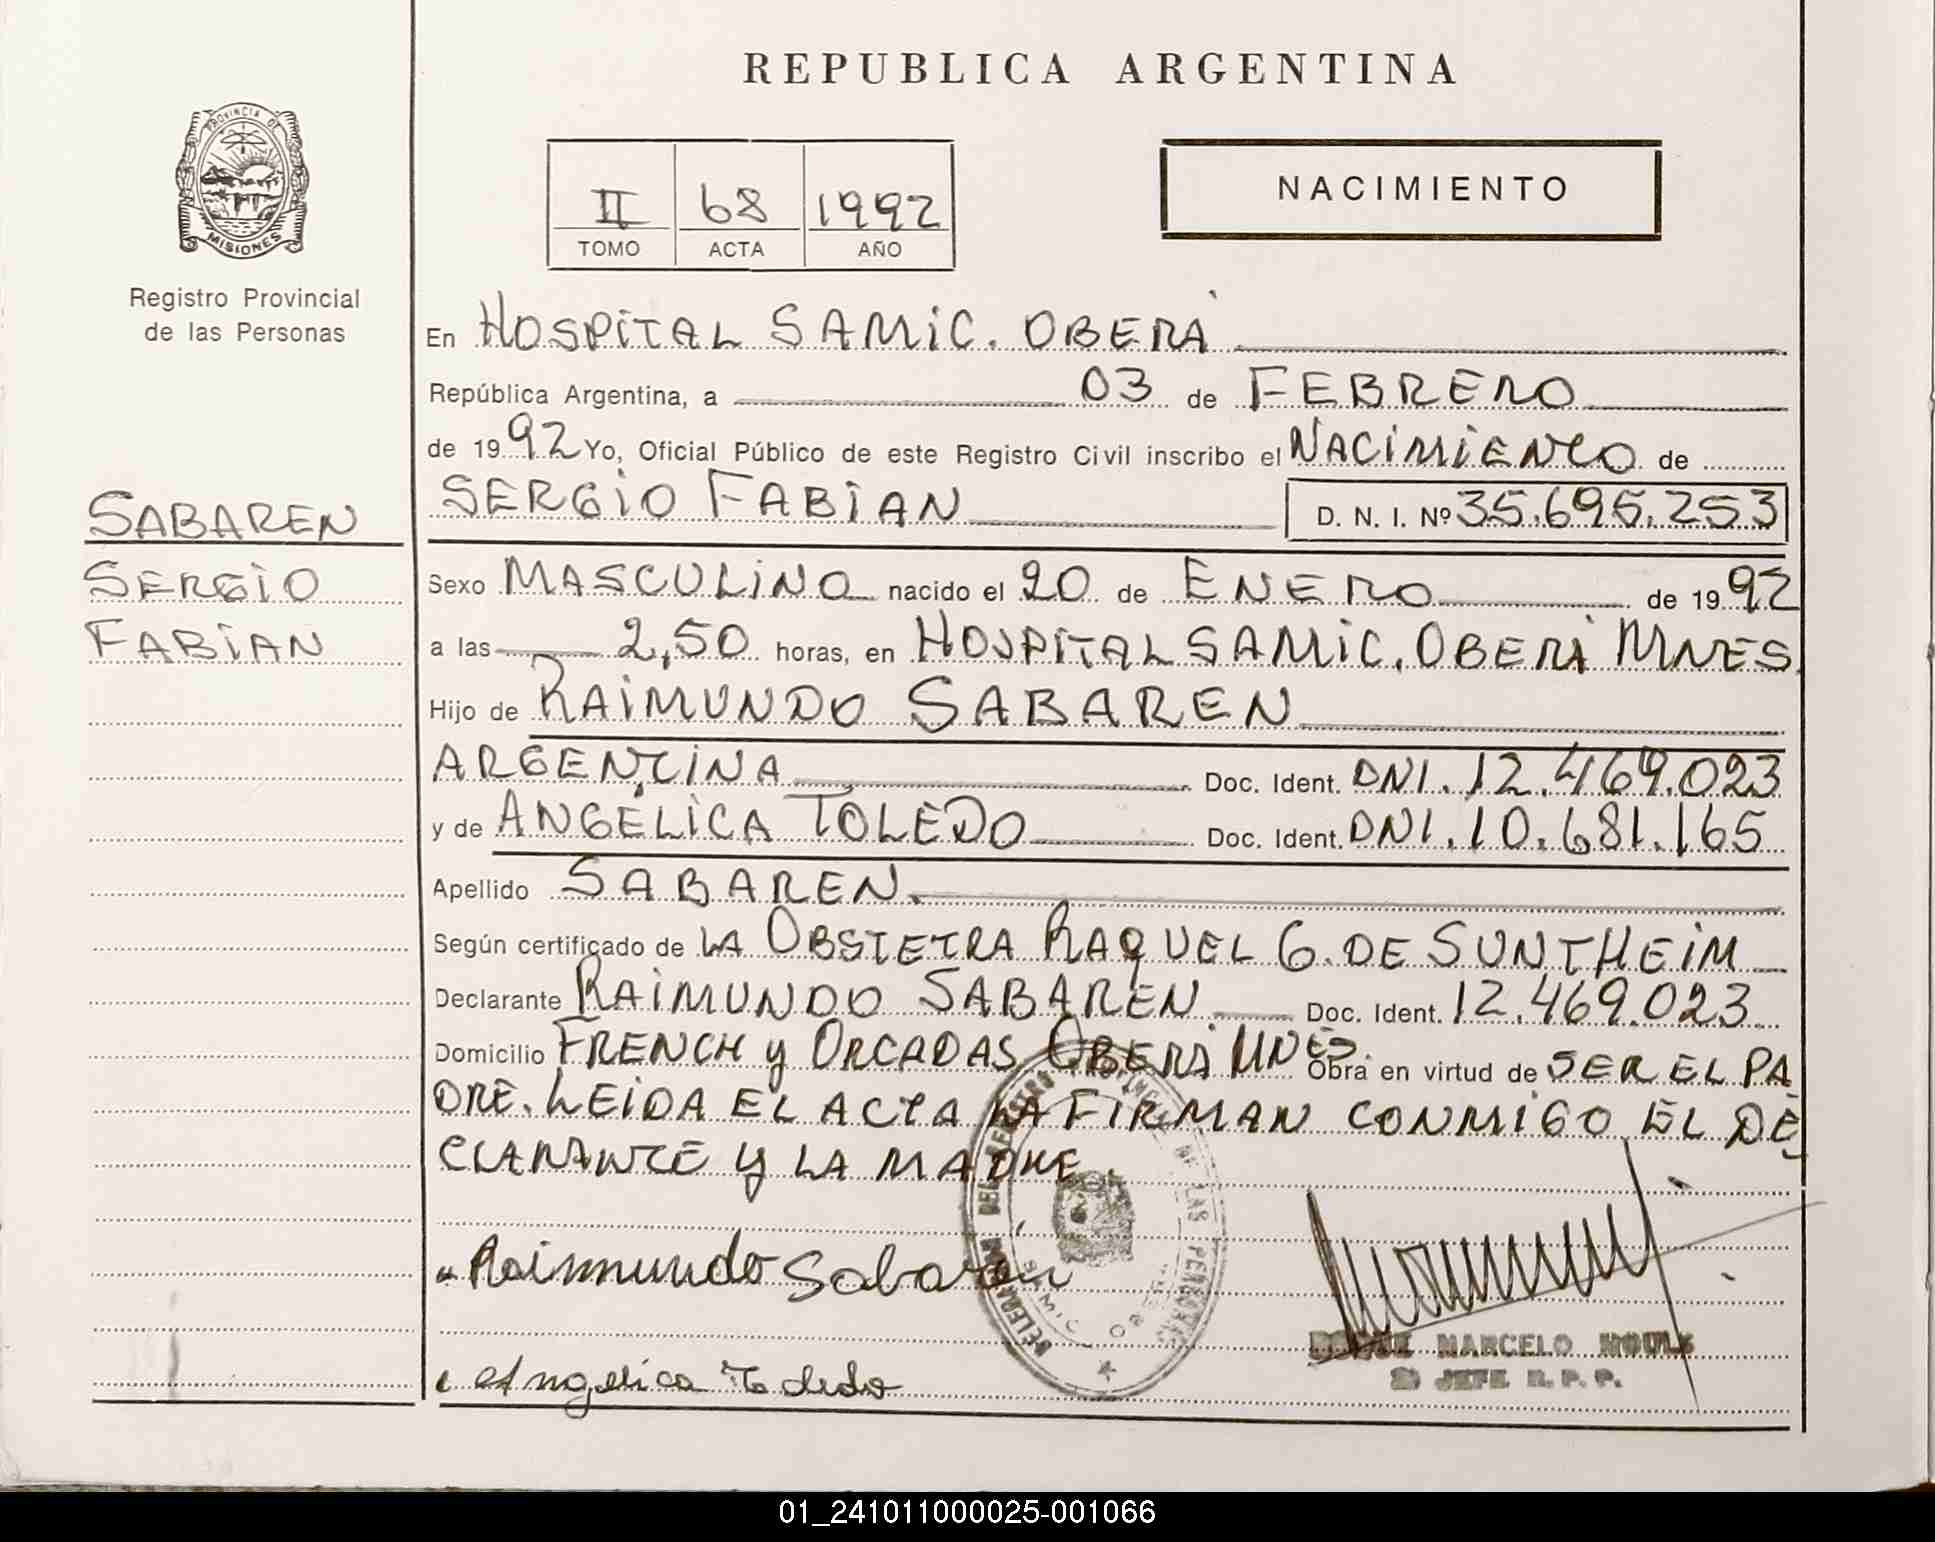 REPUBLICA ARGENTINA
PROVINCIA DE
MISIONES
Registro Provincial
de las Personas
II 68 1992
TOMO ACTA AÑO
NACIMIENTO
En HOSPITAL SAMIC. OBERÁ
República Argentina, a 03 de FEBRERO
de 1992 Yo, Oficial Público de este Registro Civil inscribo el NACIMIENTO de
SERGIO FABIAN D. N. I. Nº 35.695.253
SABAREN
SERGIO
FABIAN
Sexo MASCULINO nacido el 20 de ENERO de 1992
a las 2,50 horas, en HOSPITAL SAMIC. OBERÁ MNES.
Hijo de RAIMUNDO SABAREN
ARGENTINA Doc. Ident. DNI. 12.469.023
y de ANGÉLICA TOLEDO Doc. Ident. DNI. 10.681.165
Apellido SABAREN.
Según certificado de LA OBSTETRA RAQUEL G. DE SUNTHEIM
Declarante RAIMUNDO SABAREN Doc. Ident. 12.469.023
Domicilio FRENCH y ORCADAS OBERÁ MNES. Obra en virtud de SER EL PA
DRE. LEIDA EL ACTA LA FIRMAN CONMIGO EL DE
CLARANTE y LA MADRE.
DEL REGISTRO PROVINCIAL DE LAS PERSONAS
SAMIC OBERA
Raimundo Sabaren
Angelica Toledo
MARCELO
JEFE R. P. P.
01_241011000025-001066